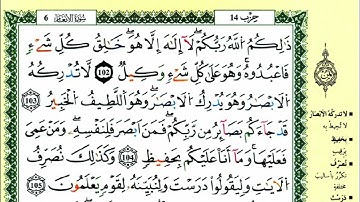 حِزْب 14 سُورَةُ الأَنْعَامِ 6
ذَٰلِكُمُ اللَّهُ رَبُّكُمْ لَا إِلَٰهَ إِلَّا هُوَ خَٰلِقُ كُلِّ شَيْءٍ
فَاعْبُدُوهُ وَهُوَ عَلَىٰ كُلِّ شَيْءٍ وَكِيلٌ 102 لَّا تُدْرِكُهُ
الْأَبْصَٰرُ وَهُوَ يُدْرِكُ الْأَبْصَٰرَ وَهُوَ اللَّطِيفُ الْخَبِيرُ 103
قَدْ جَاءَكُم بَصَائِرُ مِن رَّبِّكُمْ فَمَنْ أَبْصَرَ فَلِنَفْسِهِ وَمَنْ عَمِيَ
فَعَلَيْهَا وَمَا أَنَا عَلَيْكُم بِحَفِيظٍ 104 وَكَذَٰلِكَ نُصَرِّفُ
الْآيَٰتِ وَلِيَقُولُوا دَرَسْتَ وَلِنُبَيِّنَهُ لِقَوْمٍ يَعْلَمُونَ 105
لا تدركه الأبصار
لا تحيط به
بحفيظ
برقيب
نصرف
نكرر بأساليب
مختلفة
درست